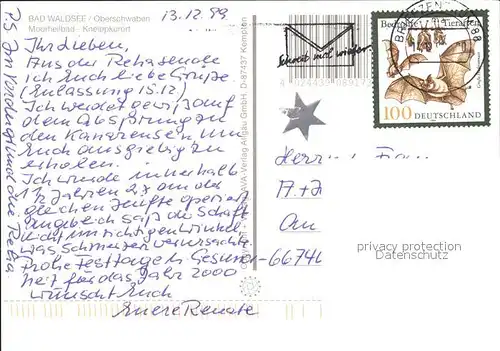 BAD WALDSEE / Oberschwaben
Moorheilbad - Kneippkurort
13.12.99
Ihr Lieben,
Aus der Reha sende
ich Euch liebe Grüße.
(Entlassung 15.12)
Ich werdet gewiß auf
dem Absprung zu
den Kanaren sein um
Euch ausgiebig zu
erholen.
Ich wurde innerhalb
1½ Jahren 2x an der
gleichen Hüfte operiert
angeblich saß der Schaft
nicht im richtigen Winkel
was Schmerzen verursachte
Frohe Festtage in Gesund-
heit für das Jahr 2000
wünscht Euch
Euere Renate
P.S. Im
und die Reha.
AVA-Verlag Allgäu GmbH, D-87437 Kempten
Schreib mal wieder
BRIEFZEN
88
Bedrohte Tierarten
100 DEUTSCHLAND
Herrn u. Frau
A.+A
Am
66740
privacy protection
Datenschutz